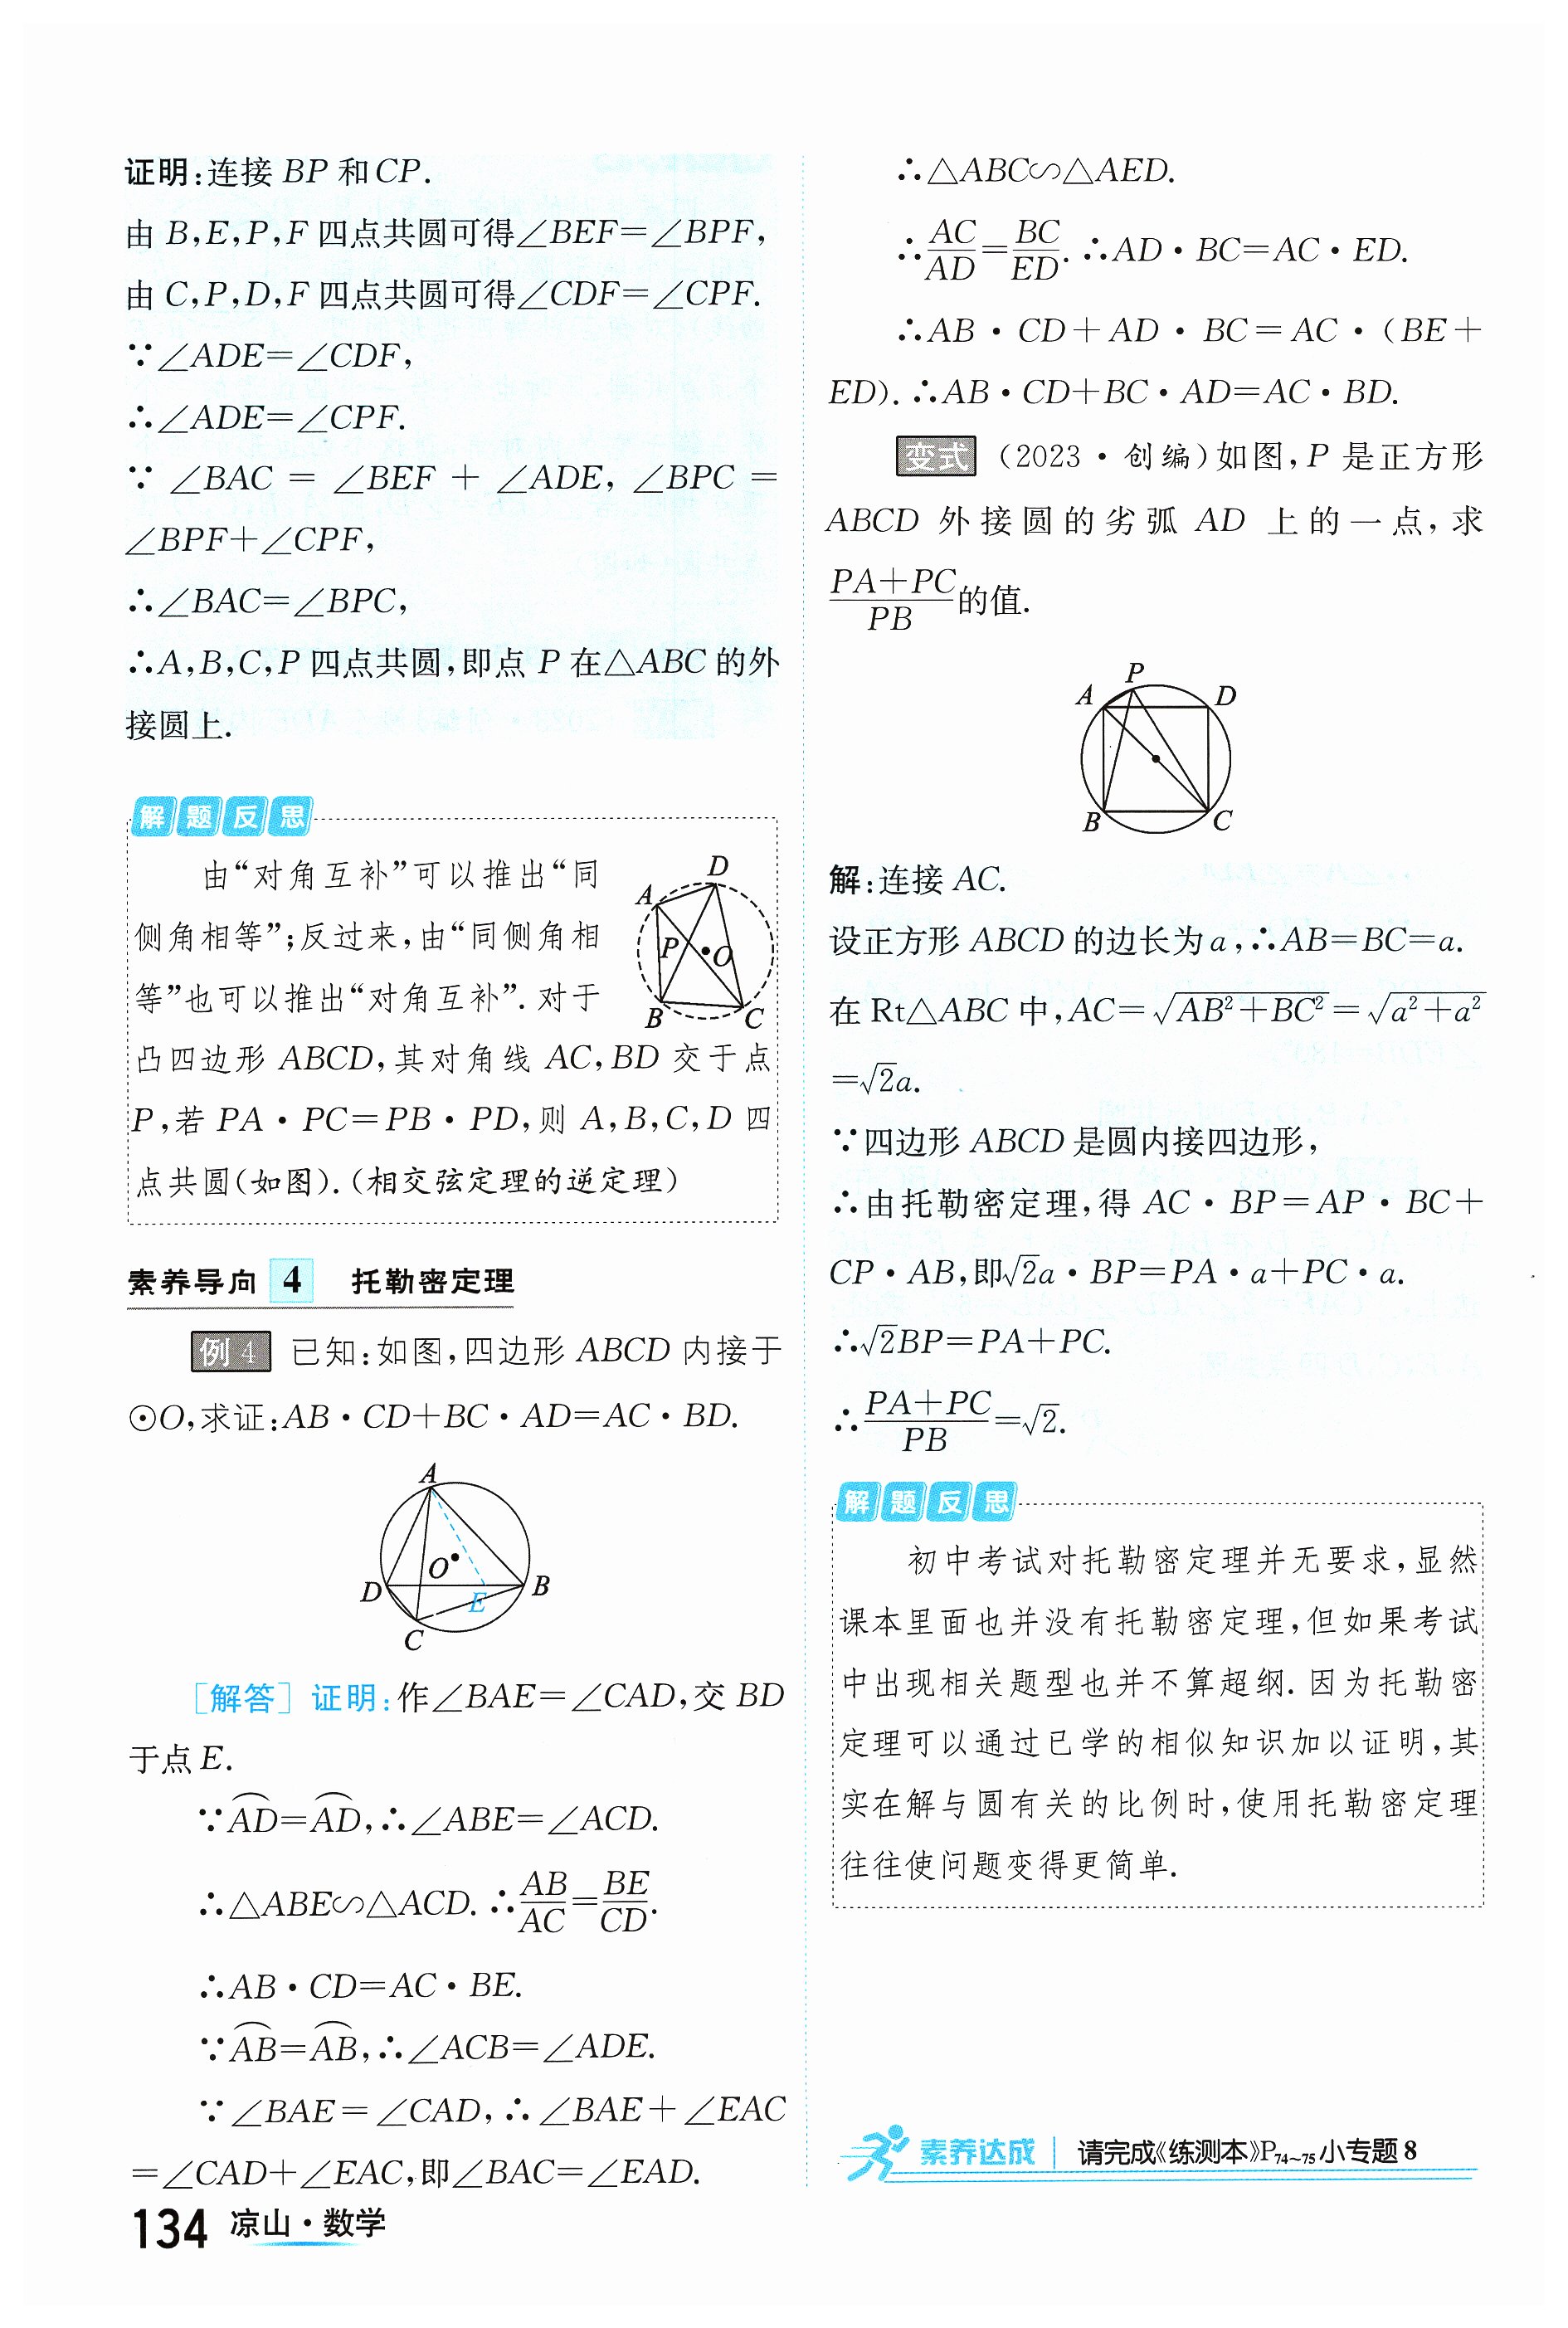 证明:连接 BP 和 CP.
由 B,E,P,F 四点共圆可得∠BEF=∠BPF,
由 C,P,D,F 四点共圆可得∠CDF=∠CPF.
∵∠ADE=∠CDF,
∴∠ADE=∠CPF.
∵ ∠BAC = ∠BEF + ∠ADE, ∠BPC =
∠BPF+∠CPF,
∴∠BAC=∠BPC,
∴A,B,C,P 四点共圆,即点 P 在△ABC 的外
接圆上.
解题反思
由“对角互补”可以推出“同
侧角相等”;反过来,由“同侧角相
等”也可以推出“对角互补”. 对于
凸四边形 ABCD,其对角线 AC,BD 交于点
P,若 PA·PC=PB·PD,则 A,B,C,D 四
点共圆(如图).(相交弦定理的逆定理)
D
A
P
O
B
C
素养导向 4 托勒密定理
例 4 已知:如图,四边形 ABCD 内接于
⊙O,求证:AB·CD+BC·AD=AC·BD.
A
O
D
B
E
C
[解答] 证明:作∠BAE=∠CAD,交 BD
于点 E.
∵$\overset{\frown}{AD}=\overset{\frown}{AD}$,∴∠ABE=∠ACD.
∴△ABE∽△ACD. ∴$\frac{AB}{AC}=\frac{BE}{CD}$.
∴AB·CD=AC·BE.
∵$\overset{\frown}{AB}=\overset{\frown}{AB}$,∴∠ACB=∠ADE.
∵∠BAE=∠CAD,∴∠BAE+∠EAC
=∠CAD+∠EAC,即∠BAC=∠EAD.
∴△ABC∽△AED.
∴$\frac{AC}{AD}=\frac{BC}{ED}$. ∴AD·BC=AC·ED.
∴AB·CD+AD·BC=AC·(BE+
ED). ∴AB·CD+BC·AD=AC·BD.
变式 (2023·创编)如图,P 是正方形
ABCD 外接圆的劣弧 AD 上的一点,求
$\frac{PA+PC}{PB}$的值.
P
A
D
B
C
解:连接 AC.
设正方形 ABCD 的边长为 a,∴AB=BC=a.
在 Rt△ABC 中,AC=$\sqrt{AB^2+BC^2}$=$\sqrt{a^2+a^2}$
=$\sqrt{2}$a.
∵四边形 ABCD 是圆内接四边形,
∴由托勒密定理,得 AC·BP=AP·BC+
CP·AB,即$\sqrt{2}$a·BP=PA·a+PC·a.
∴$\sqrt{2}$BP=PA+PC.
∴$\frac{PA+PC}{PB}$=$\sqrt{2}$.
解题反思
初中考试对托勒密定理并无要求,显然
课本里面也并没有托勒密定理,但如果考试
中出现相关题型也并不算超纲. 因为托勒密
定理可以通过已学的相似知识加以证明,其
实在解与圆有关的比例时,使用托勒密定理
往往使问题变得更简单.
素养达成 | 请完成《练测本》P₇₄~₇₅小专题 8
134 凉山·数学